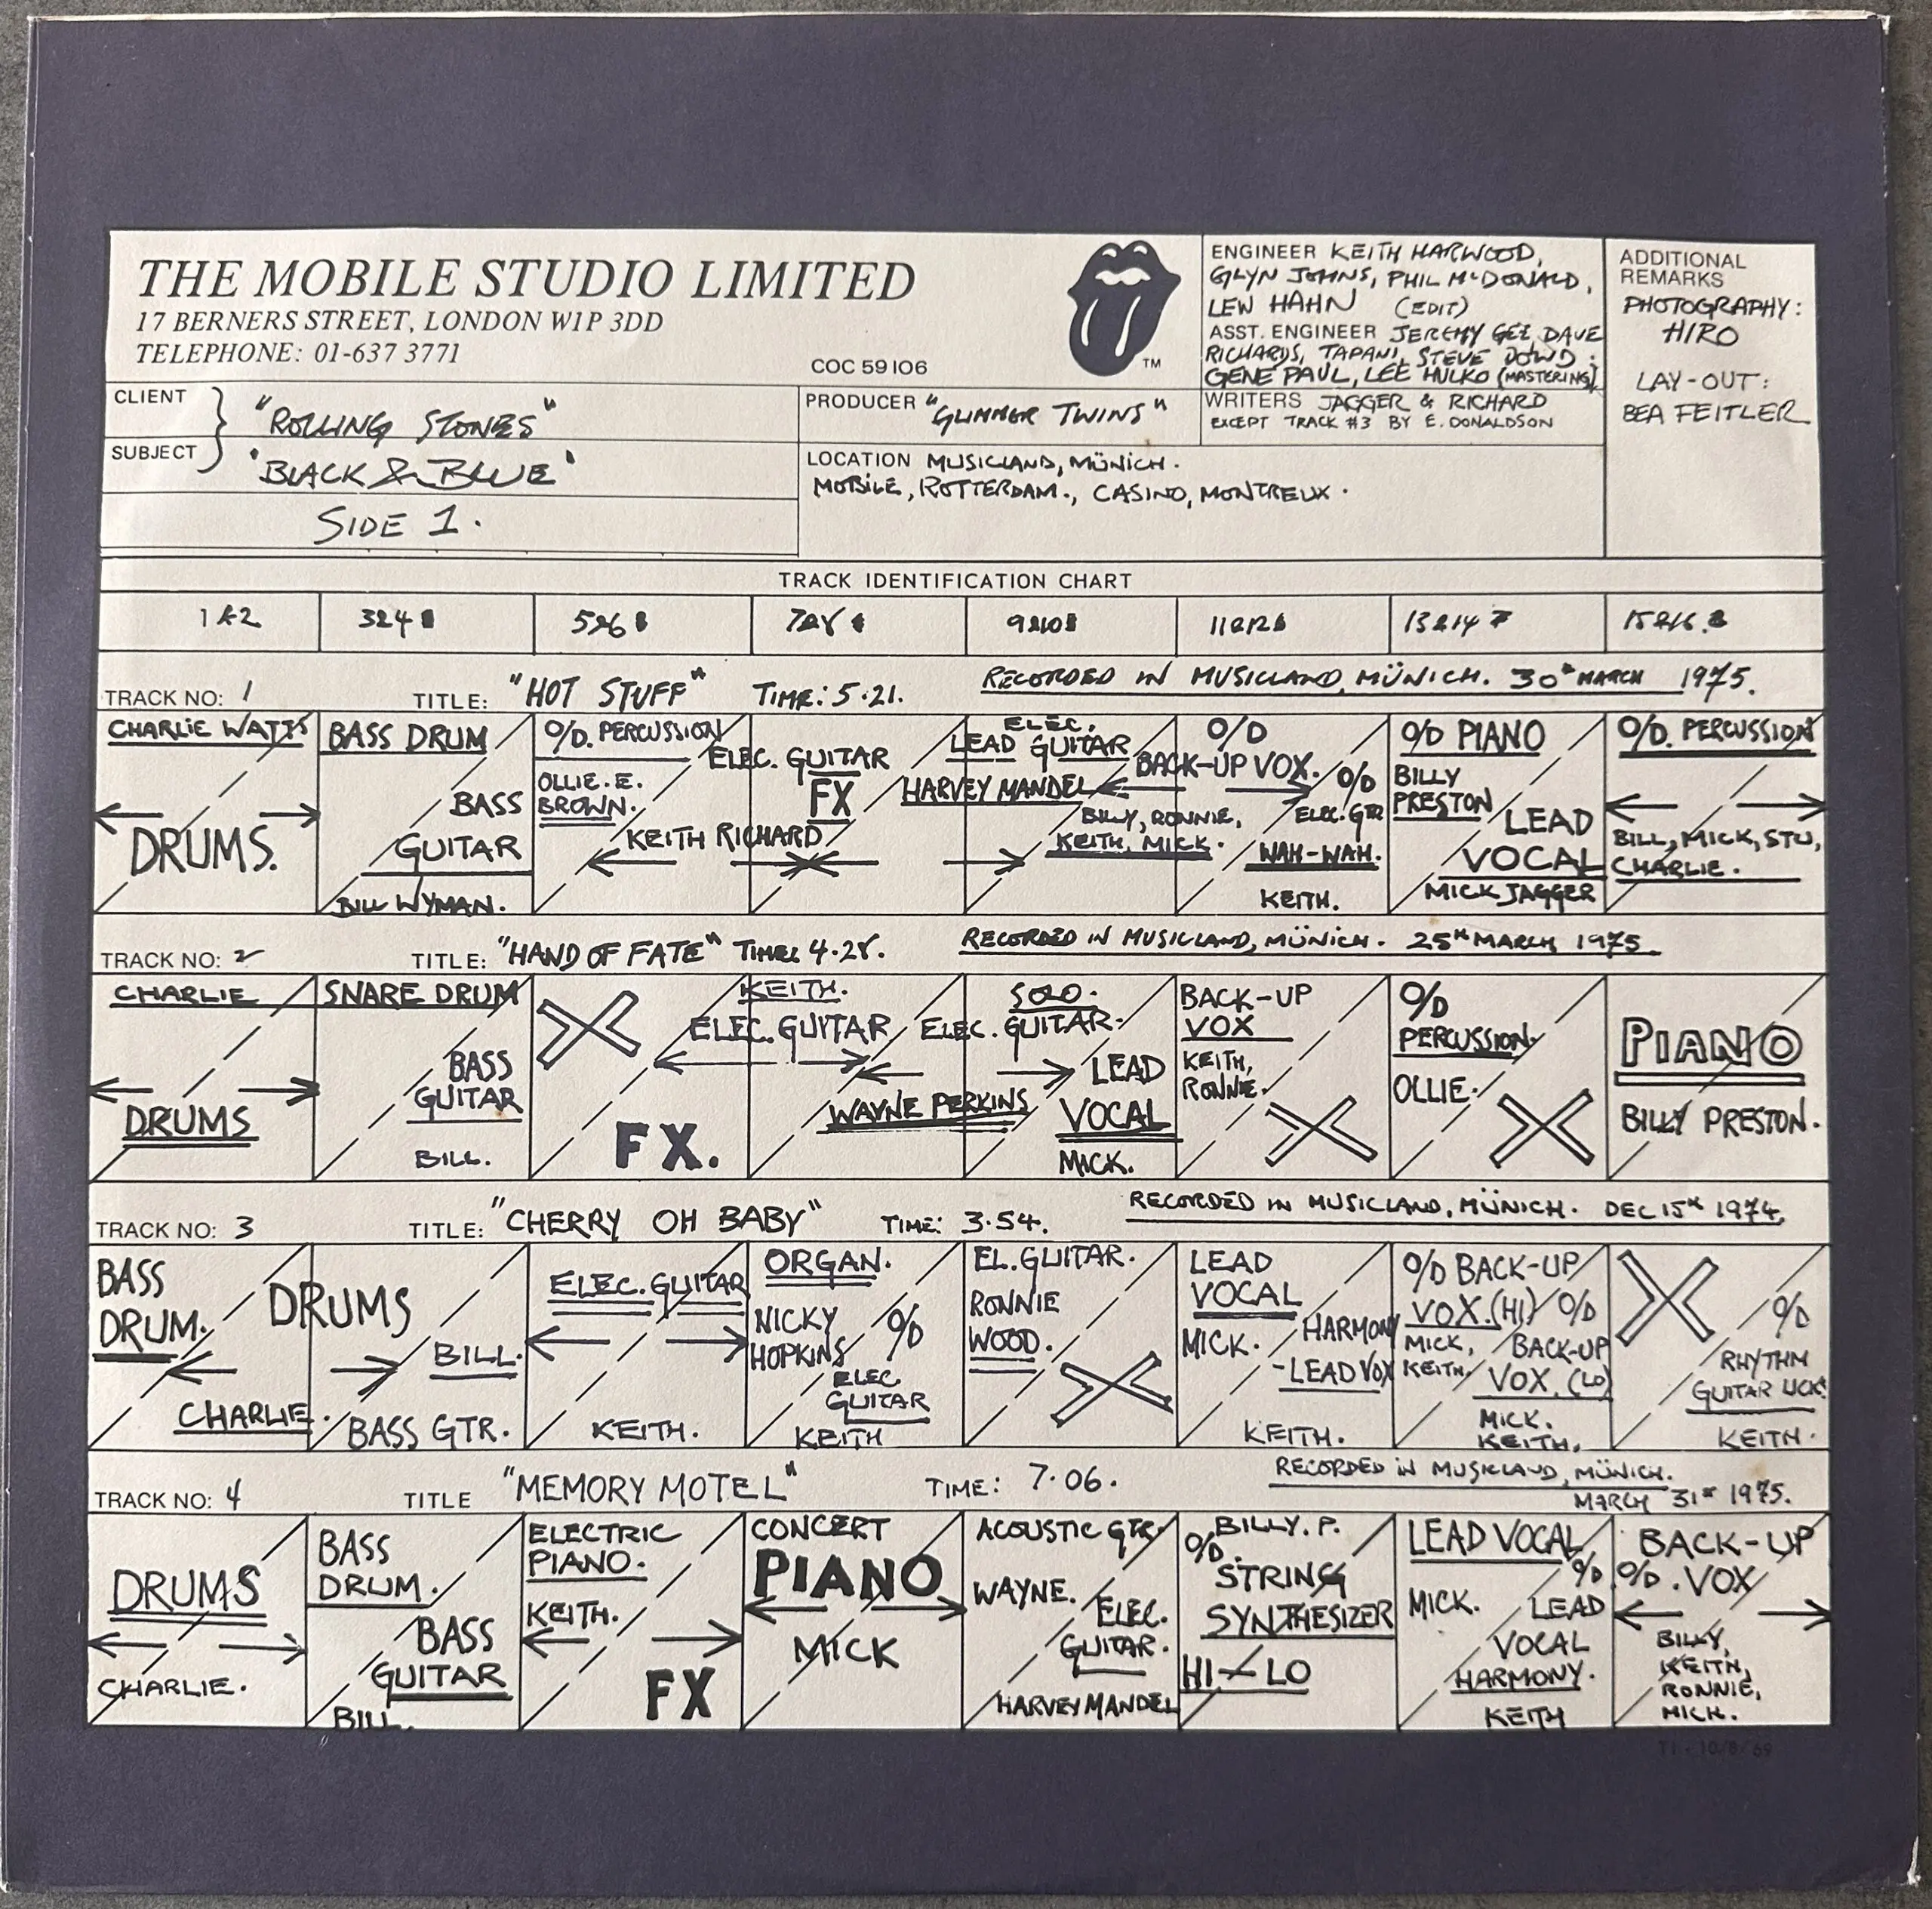 THE MOBILE STUDIO LIMITED
17 BERNERS STREET, LONDON W1P 3DD
TELEPHONE: 01-637 3771
COC 59106
TM
ENGINEER KEITH HARWOOD,
GLYN JOHNS, PHIL McDONALD,
LEW HAHN (EDIT)
ASST. ENGINEER JEREMY GEE, DAVE
RICHARDS, TAPANI, STEVE DOWD;
GENE PAUL, LEE HULKO (MASTERING)
WRITERS JAGGER & RICHARD
EXCEPT TRACK #3 BY E. DONALDSON
ADDITIONAL
REMARKS
PHOTOGRAPHY:
HIRO
LAY-OUT:
BEA FEITLER
CLIENT
"ROLLING STONES"
SUBJECT
'BLACK & BLUE'
SIDE 1.
PRODUCER "GLIMMER TWINS"
LOCATION MUSICLAND, MÜNICH.
MOBILE, ROTTERDAM., CASINO, MONTREUX.
TRACK IDENTIFICATION CHART
1&2 3&4 5&6 7&8 9&10 11&12 13&14 15&16
TRACK NO: 1 TITLE: "HOT STUFF" TIME: 5·21. RECORDED IN MUSICLAND, MÜNICH. 30th MARCH 1975.
CHARLIE WATTS
DRUMS.
BASS DRUM
BASS
GUITAR
BILL WYMAN.
O/D. PERCUSSION
OLLIE. E.
BROWN.
ELEC. GUITAR
FX
KEITH RICHARD
ELEC.
LEAD GUITAR
HARVEY MANDEL
O/D
BACK-UP VOX.
BILLY, RONNIE,
KEITH, MICK.
O/D
ELEC. GTR
WAH-WAH.
KEITH.
O/D PIANO
BILLY
PRESTON
LEAD
VOCAL
MICK JAGGER
O/D. PERCUSSION
BILL, MICK, STU,
CHARLIE.
TRACK NO: 2 TITLE: "HAND OF FATE" TIME: 4·28. RECORDED IN MUSICLAND, MÜNICH. 25th MARCH 1975
CHARLIE
DRUMS
SNARE DRUM
BASS
GUITAR
BILL.
FX.
KEITH.
ELEC. GUITAR
SOLO.
ELEC. GUITAR.
WAYNE PERKINS
LEAD
VOCAL
MICK.
BACK-UP
VOX
KEITH,
RONNIE.
O/D
PERCUSSION.
OLLIE.
PIANO
BILLY PRESTON.
TRACK NO: 3 TITLE: "CHERRY OH BABY" TIME: 3·54. RECORDED IN MUSICLAND, MÜNICH. DEC 15th 1974.
BASS
DRUM.
DRUMS
CHARLIE.
BILL.
BASS GTR.
ELEC. GUITAR
KEITH.
ORGAN.
NICKY
HOPKINS
O/D
ELEC
GUITAR
KEITH
EL. GUITAR.
RONNIE
WOOD.
LEAD
VOCAL
MICK.
HARMONY
-LEAD VOX
KEITH.
O/D BACK-UP
VOX. (HI)
MICK,
KEITH
O/D
BACK-UP
VOX. (LO)
MICK.
KEITH.
O/D
RHYTHM
GUITAR LICK.
KEITH.
TRACK NO: 4 TITLE "MEMORY MOTEL" TIME: 7·06. RECORDED IN MUSICLAND, MÜNICH.
MARCH 31st 1975.
DRUMS
CHARLIE.
BASS
DRUM.
BASS
GUITAR
BILL.
ELECTRIC
PIANO.
KEITH.
FX
CONCERT
PIANO
MICK
ACOUSTIC GTR.
WAYNE.
ELEC.
GUITAR.
HARVEY MANDEL
BILLY. P.
O/D.
STRING
SYNTHESIZER
HI - LO
LEAD VOCAL
MICK.
O/D
LEAD
VOCAL
HARMONY.
KEITH
BACK-UP
O/D. VOX
BILLY,
KEITH,
RONNIE,
MICK.
T1 - 10/8/69